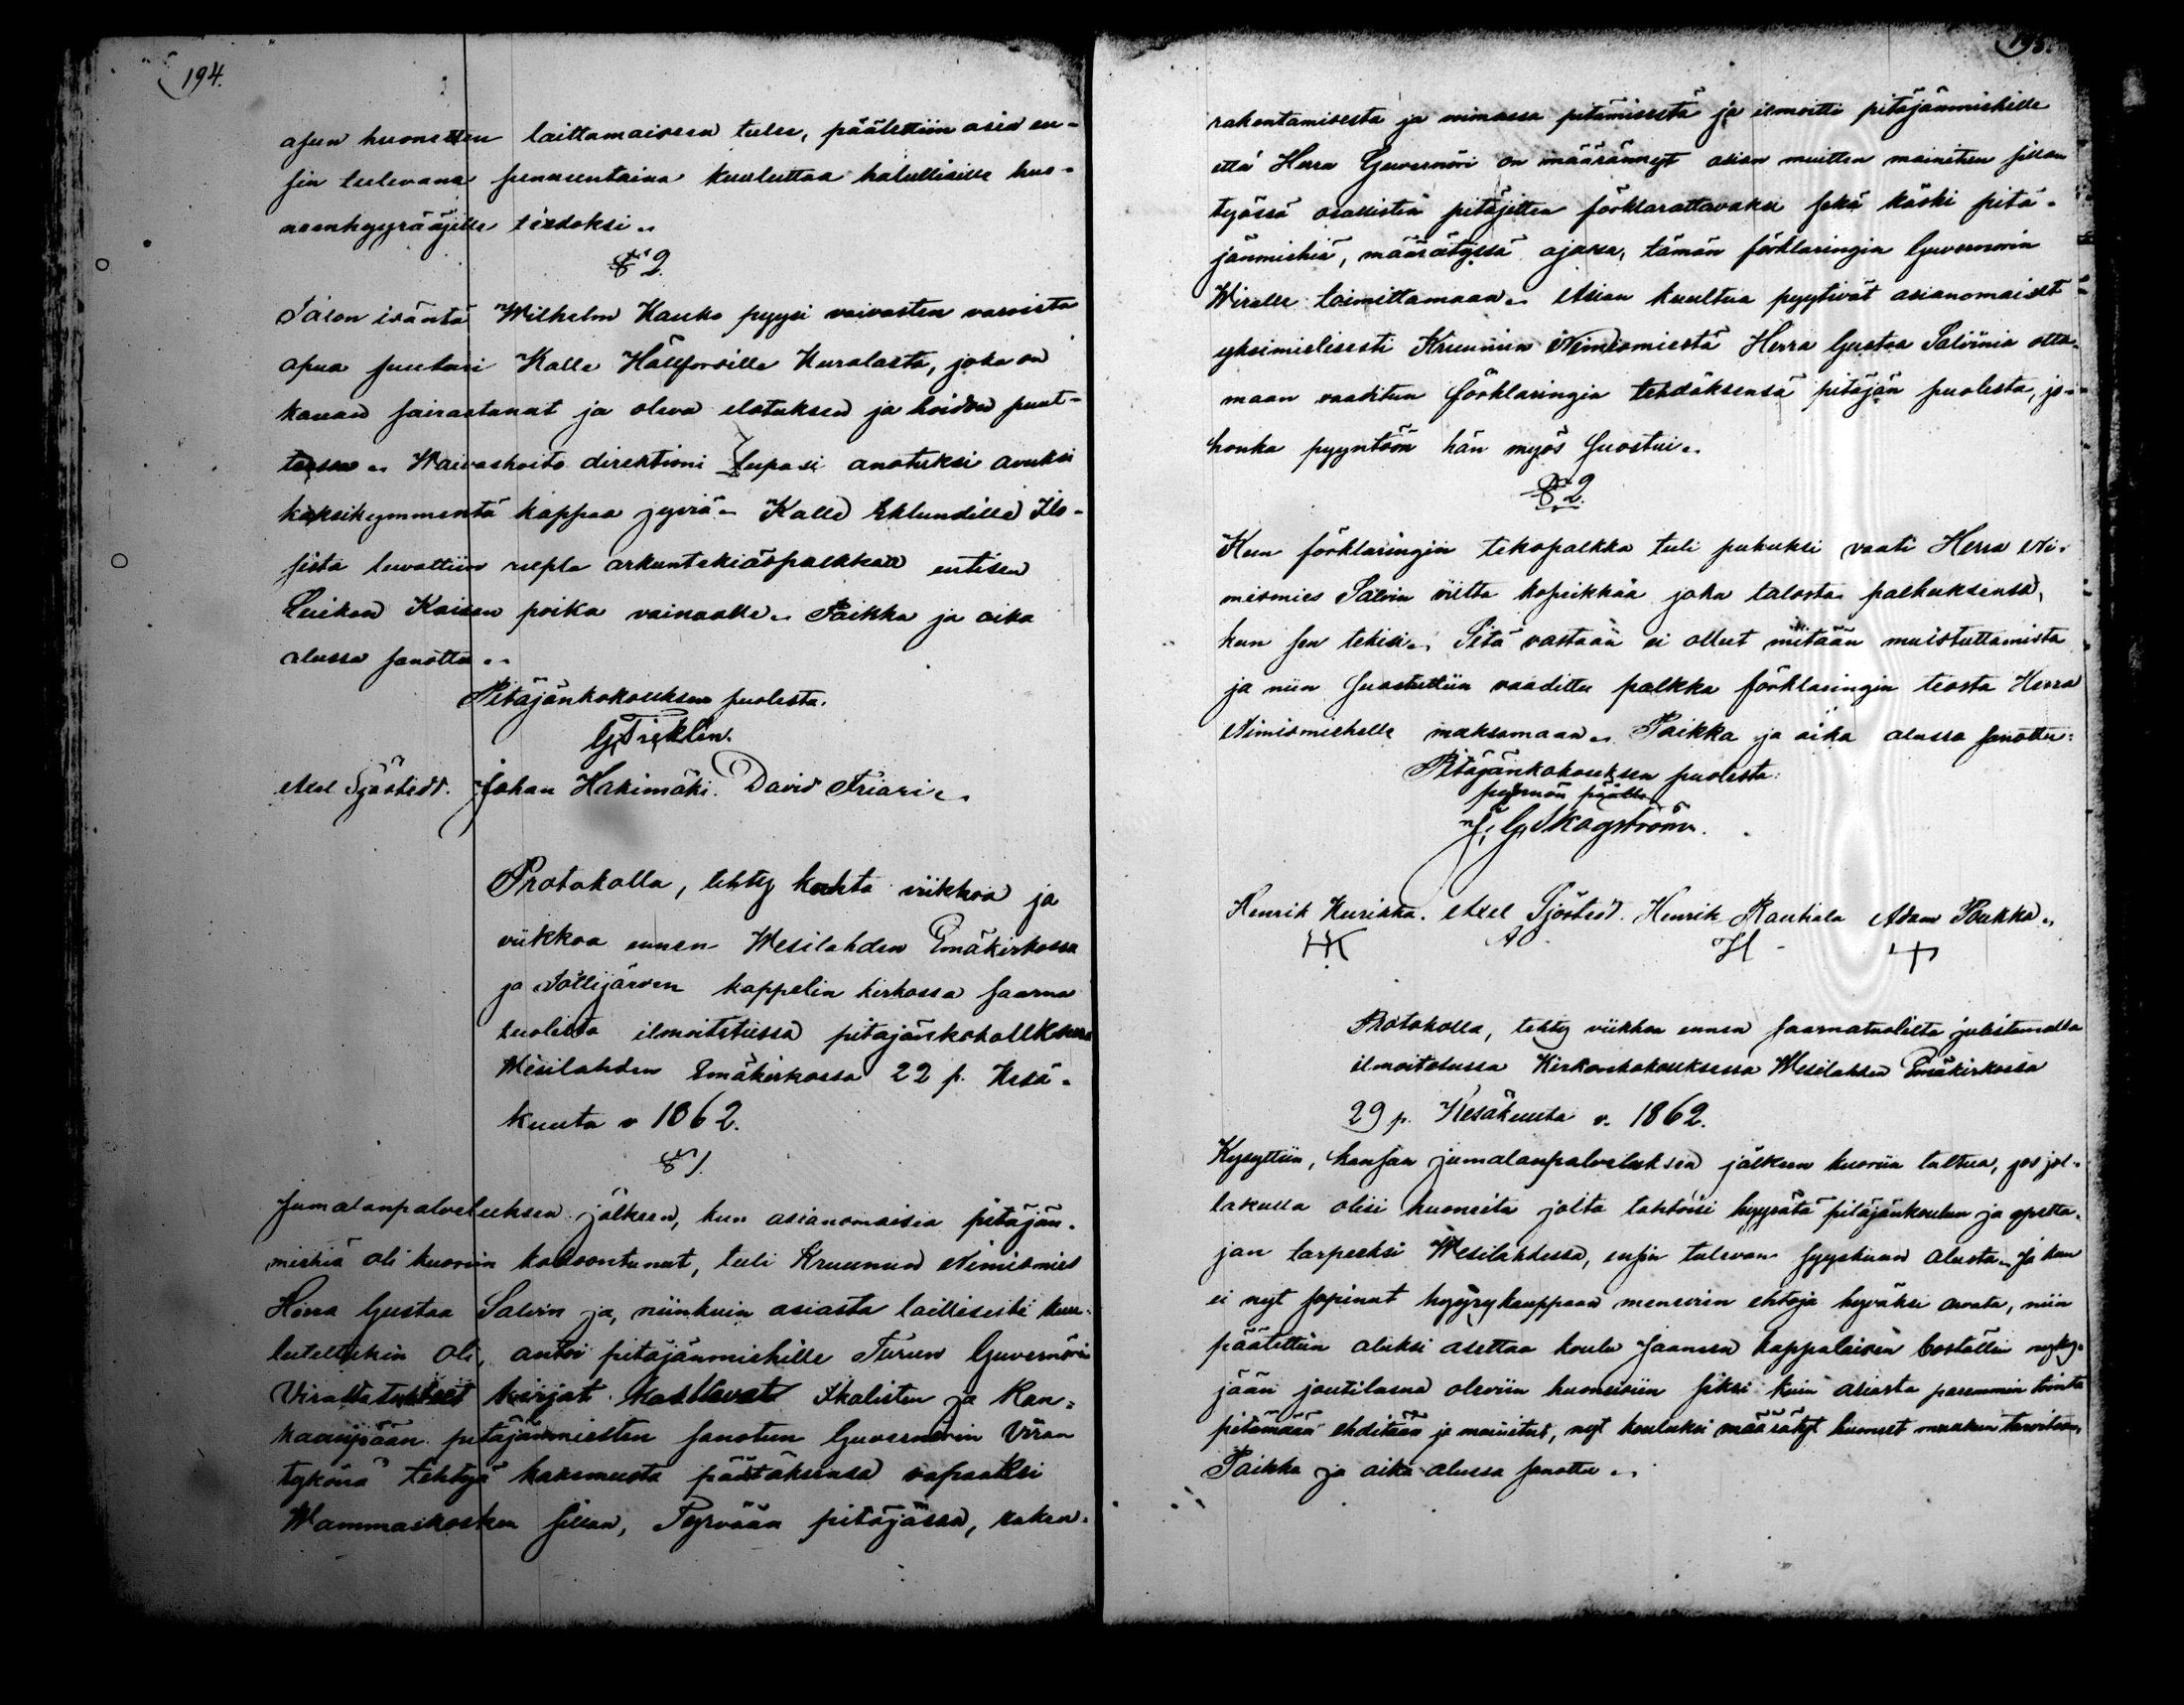 194.
asun huonetten laittamaisesa tulee, päätettiin asia en-
sin tulevana sunnuntaina kuuluttaa halullisille huo-
neenhyyrääjille tiedoksi.
§ 2.
Talon isäntä Wilhelm Kauko pyysi vaivasten varoista
apua suutari Kalle Hällforsille Kuralasta, joka on
kauan sairastanut ja oleva elatuksen ja hoidon puut-
teessa. Waivashoito direktioni lupasi anotuksi avuksi
kaksikymmentä kappaa jyviä. Kalle Eklundille Ilo-
sista luvattiin rupla arkuntekiäspalkkaa entisen
Leikon Kaisan poika vainaalle. Paikka ja aika
alussa sanottu.
Pitäjänkokouksen puolesta.
G. Tricklin.
Axel Sjöstedt. Johan Hakimäki. David Friari.
Protokolla, tehty kahta viikkoa ja
viikkoa ennen Wesilahden Emäkirkossa
ja Tottijärven kappelin kirkossa saarna
tuolista ilmoitetussa pitäjänkokouksessa
Wesilahden Emäkirkossa 22 p. Kesä-
kuuta v 1862.
§ 1.
Jumalanpalveluksen jälkeen, kun asianomaisia pitäjän-
miehiä oli kuoriin kokoontunut, tuli Kruunun Nimismies
Herra Gustaa Salvin ja, niinkuin asiasta laillisesti kuu-
lutettukin oli, antoi pitäjänmiehille Turun Guvernörin
Virasta tulleet kirjat koskevat Ikalisten ja Kan-
kaanpään pitäjänmiesten sanotun Guvernörin Viran
tykönä tehtyä hakemusta päästäksensä vapaaksi
Wammaskosken sillan, Tyrvään pitäjässä, raken-
195.
rakentamisesta ja voimassa pitämisestä ja ilmoitti pitäjänmiehille
että Herra Guvernöri on määrännyt asian muitten mainitun sillan
työssä osallisten pitäjitten förklarattavaksi sekä käski pitä-
jänmiehiä, määrätyssä ajassa, tämän förklaringin Guvernörin
Wiralle toimittamaan. Asian kuultua pyytivät asianomaiset
yksimielisesti Kruunun Nimismiestä Herra Gustaa Salvinia otta-
maan vaaditun förklaringin tehdäksensä pitäjän puolesta, jo-
honka pyyntöön hän myös suostui.
§ 2.
Kun förklaringin tekopalkka tuli puheeksi vaati Herra Ni-
mismies Salvin viittä kopeikkaa joka talosta palkaksensa,
kun sen tekisi. Sitä vastaan ei ollut mitään muistuttamista
ja niin suostuttiin vaadittu palkka förklaringin teosta Herra
Nimismiehelle maksamaan. Paikka ja aika alussa sanottu.
Pitäjänkokouksen puolesta:
pyynnön päälle
J. G. Skogström.
Henrik Kurikka. Axel Sjöstedt. Henrik Rautiala Adam Poukka.
HK A H
Protokolla, tehty viikkoa ennen saarnatuolilta julistamalla
ilmoitetussa Kirkonkokouksessa Wesilahden Emäkirkossa
29 p. Kesäkuuta v. 1862.
Kysyttiin, kansan jumalanpalveluksen jälkeen kuoriin tultua, jos jol-
lakulla olisi huoneita joita tahtoisi hyyrätä pitäjänkoulun ja opetta-
jan tarpeeksi Wesilahdessa, ensin tulevan syyskuun alusta. Ja kun
ei nyt sopinut hyyrykauppaan meneviin ehtoja hyväksi arvata, niin
päätettiin aluksi asettaa koulu Jaansen kappalaisen boställin nyky-
jään joutilasna oleviin huoneisiin siksi kuin asiasta paremmin toimta
pitämään ehditään ja mainitut, nyt kouluksi määrätyt huoneet muukun tarvitaan,
Paikka ja aika alussa sanottu.